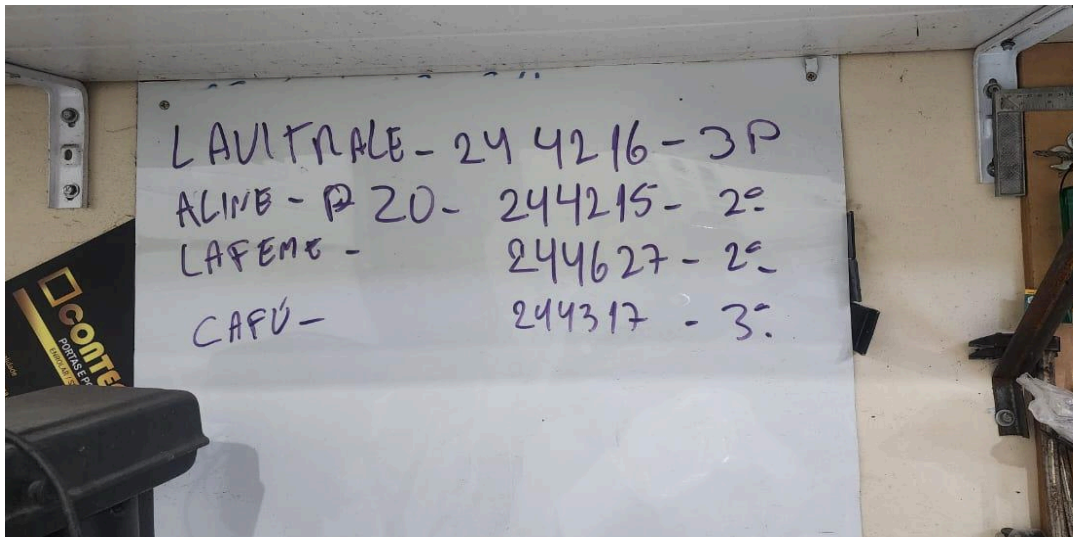 LAVITRALE - 244216 - 3P
ALINE - P 20 - 244215 - 2º
LAFEME - 244627 - 2º
CAFÚ - 244317 - 3º
CONTE
PORTAS E PO
ENROLAR